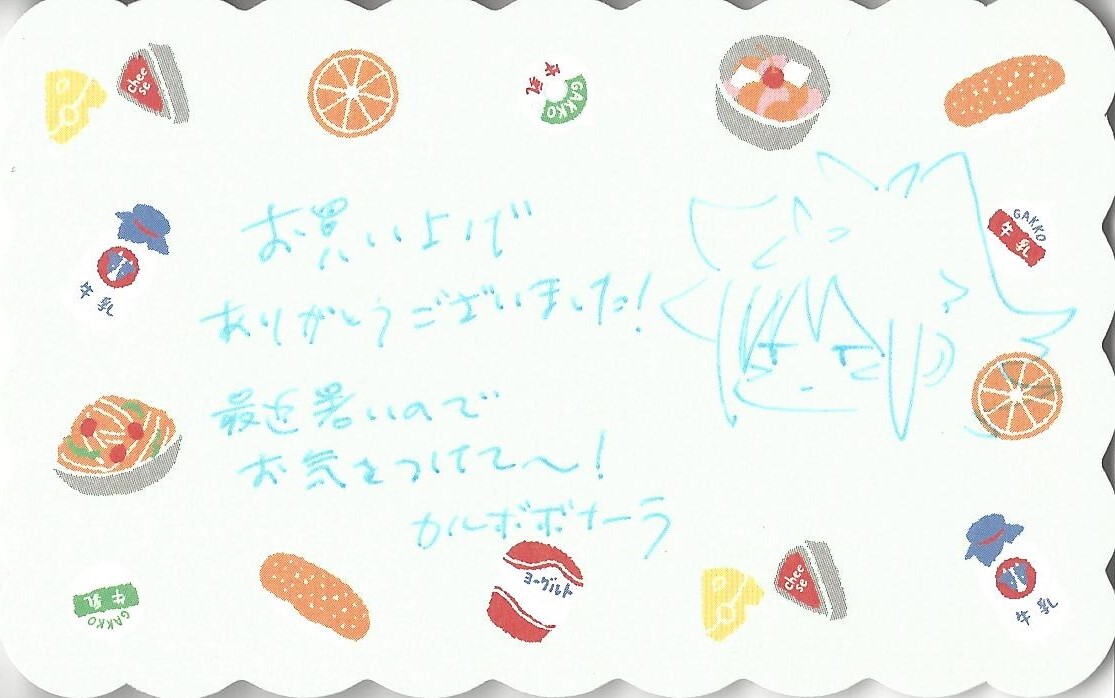 chee
se
牛乳
GAKKO
牛乳
GAKKO
牛乳
お買い上げ
ありがとうございました!
最近暑いので
お気をつけて〜!
カルボボナーラ
牛乳
GAKKO
ヨーグルト
chee
se
牛乳